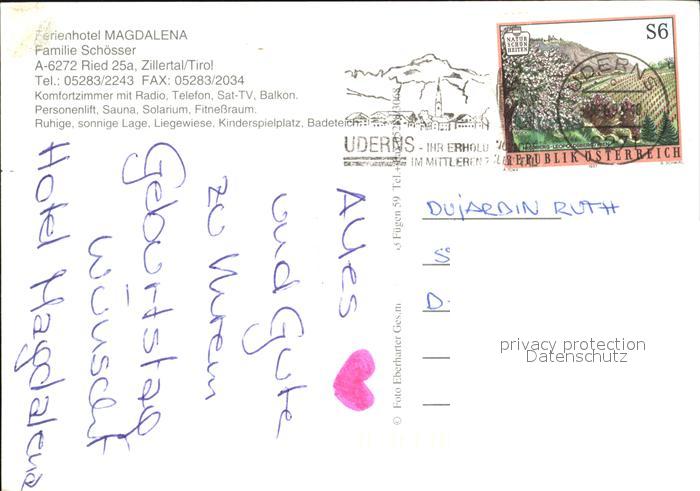 Ferienhotel MAGDALENA
Familie Schösser
A-6272 Ried 25a, Zillertal/Tirol
Tel.: 05283/2243 FAX: 05283/2034
Komfortzimmer mit Radio, Telefon, Sat-TV, Balkon.
Personenlift, Sauna, Solarium, Fitneßraum.
Ruhige, sonnige Lage, Liegewiese, Kinderspielplatz,
Alles
und Gute
zu Ihrem
Geburtstag
wünscht
Hotel Magdalena
© Foto Eberharter Ges.m
Fügen 59 Tel.
UDERNS - IHR ERHOLU
IM MITTLEREN
NATUR
SCHÖN
HEITEN
S6
REPUBLIK ÖSTERREICH
UDERNS
DUJARDIN RUTH
S
D.
privacy protection
Datenschutz